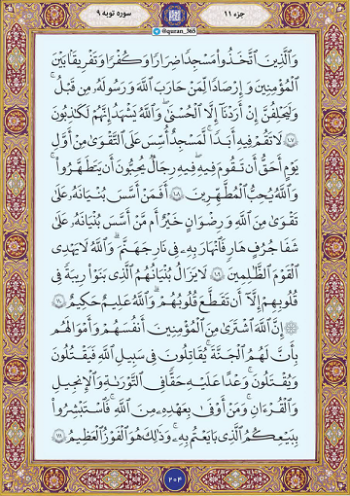 جزء ۱۱
سوره توبه ۹
@quran_365
وَالَّذِينَ اتَّخَذُوا مَسْجِدًا ضِرَارًا وَكُفْرًا وَتَفْرِيقًا بَيْنَ
الْمُؤْمِنِينَ وَإِرْصَادًا لِمَنْ حَارَبَ اللَّهَ وَرَسُولَهُ مِن قَبْلُ ۚ
وَلَيَحْلِفُنَّ إِنْ أَرَدْنَا إِلَّا الْحُسْنَىٰ ۖ وَاللَّهُ يَشْهَدُ إِنَّهُمْ لَكَاذِبُونَ
﴿١٠٧﴾ لَا تَقُمْ فِيهِ أَبَدًا ۚ لَّمَسْجِدٌ أُسِّسَ عَلَى التَّقْوَىٰ مِنْ أَوَّلِ
يَوْمٍ أَحَقُّ أَن تَقُومَ فِيهِ ۚ فِيهِ رِجَالٌ يُحِبُّونَ أَن يَتَطَهَّرُوا ۚ
وَاللَّهُ يُحِبُّ الْمُطَّهِّرِينَ ﴿١٠٨﴾ أَفَمَنْ أَسَّسَ بُنْيَانَهُ عَلَىٰ
تَقْوَىٰ مِنَ اللَّهِ وَرِضْوَانٍ خَيْرٌ أَم مَّنْ أَسَّسَ بُنْيَانَهُ عَلَىٰ
شَفَا جُرُفٍ هَارٍ فَانْهَارَ بِهِ فِي نَارِ جَهَنَّمَ ۗ وَاللَّهُ لَا يَهْدِي
الْقَوْمَ الظَّالِمِينَ ﴿١٠٩﴾ لَا يَزَالُ بُنْيَانُهُمُ الَّذِي بَنَوْا رِيبَةً فِي
قُلُوبِهِمْ إِلَّا أَن تَقَطَّعَ قُلُوبُهُمْ ۗ وَاللَّهُ عَلِيمٌ حَكِيمٌ ﴿١١٠﴾
۞ إِنَّ اللَّهَ اشْتَرَىٰ مِنَ الْمُؤْمِنِينَ أَنفُسَهُمْ وَأَمْوَالَهُم
بِأَنَّ لَهُمُ الْجَنَّةَ ۚ يُقَاتِلُونَ فِي سَبِيلِ اللَّهِ فَيَقْتُلُونَ
وَيُقْتَلُونَ ۖ وَعْدًا عَلَيْهِ حَقًّا فِي التَّوْرَاةِ وَالْإِنجِيلِ
وَالْقُرْءَانِ ۚ وَمَنْ أَوْفَىٰ بِعَهْدِهِ مِنَ اللَّهِ ۚ فَاسْتَبْشِرُوا
بِبَيْعِكُمُ الَّذِي بَايَعْتُم بِهِ ۚ وَذَٰلِكَ هُوَ الْفَوْزُ الْعَظِيمُ ﴿١١١﴾
۲۰۴